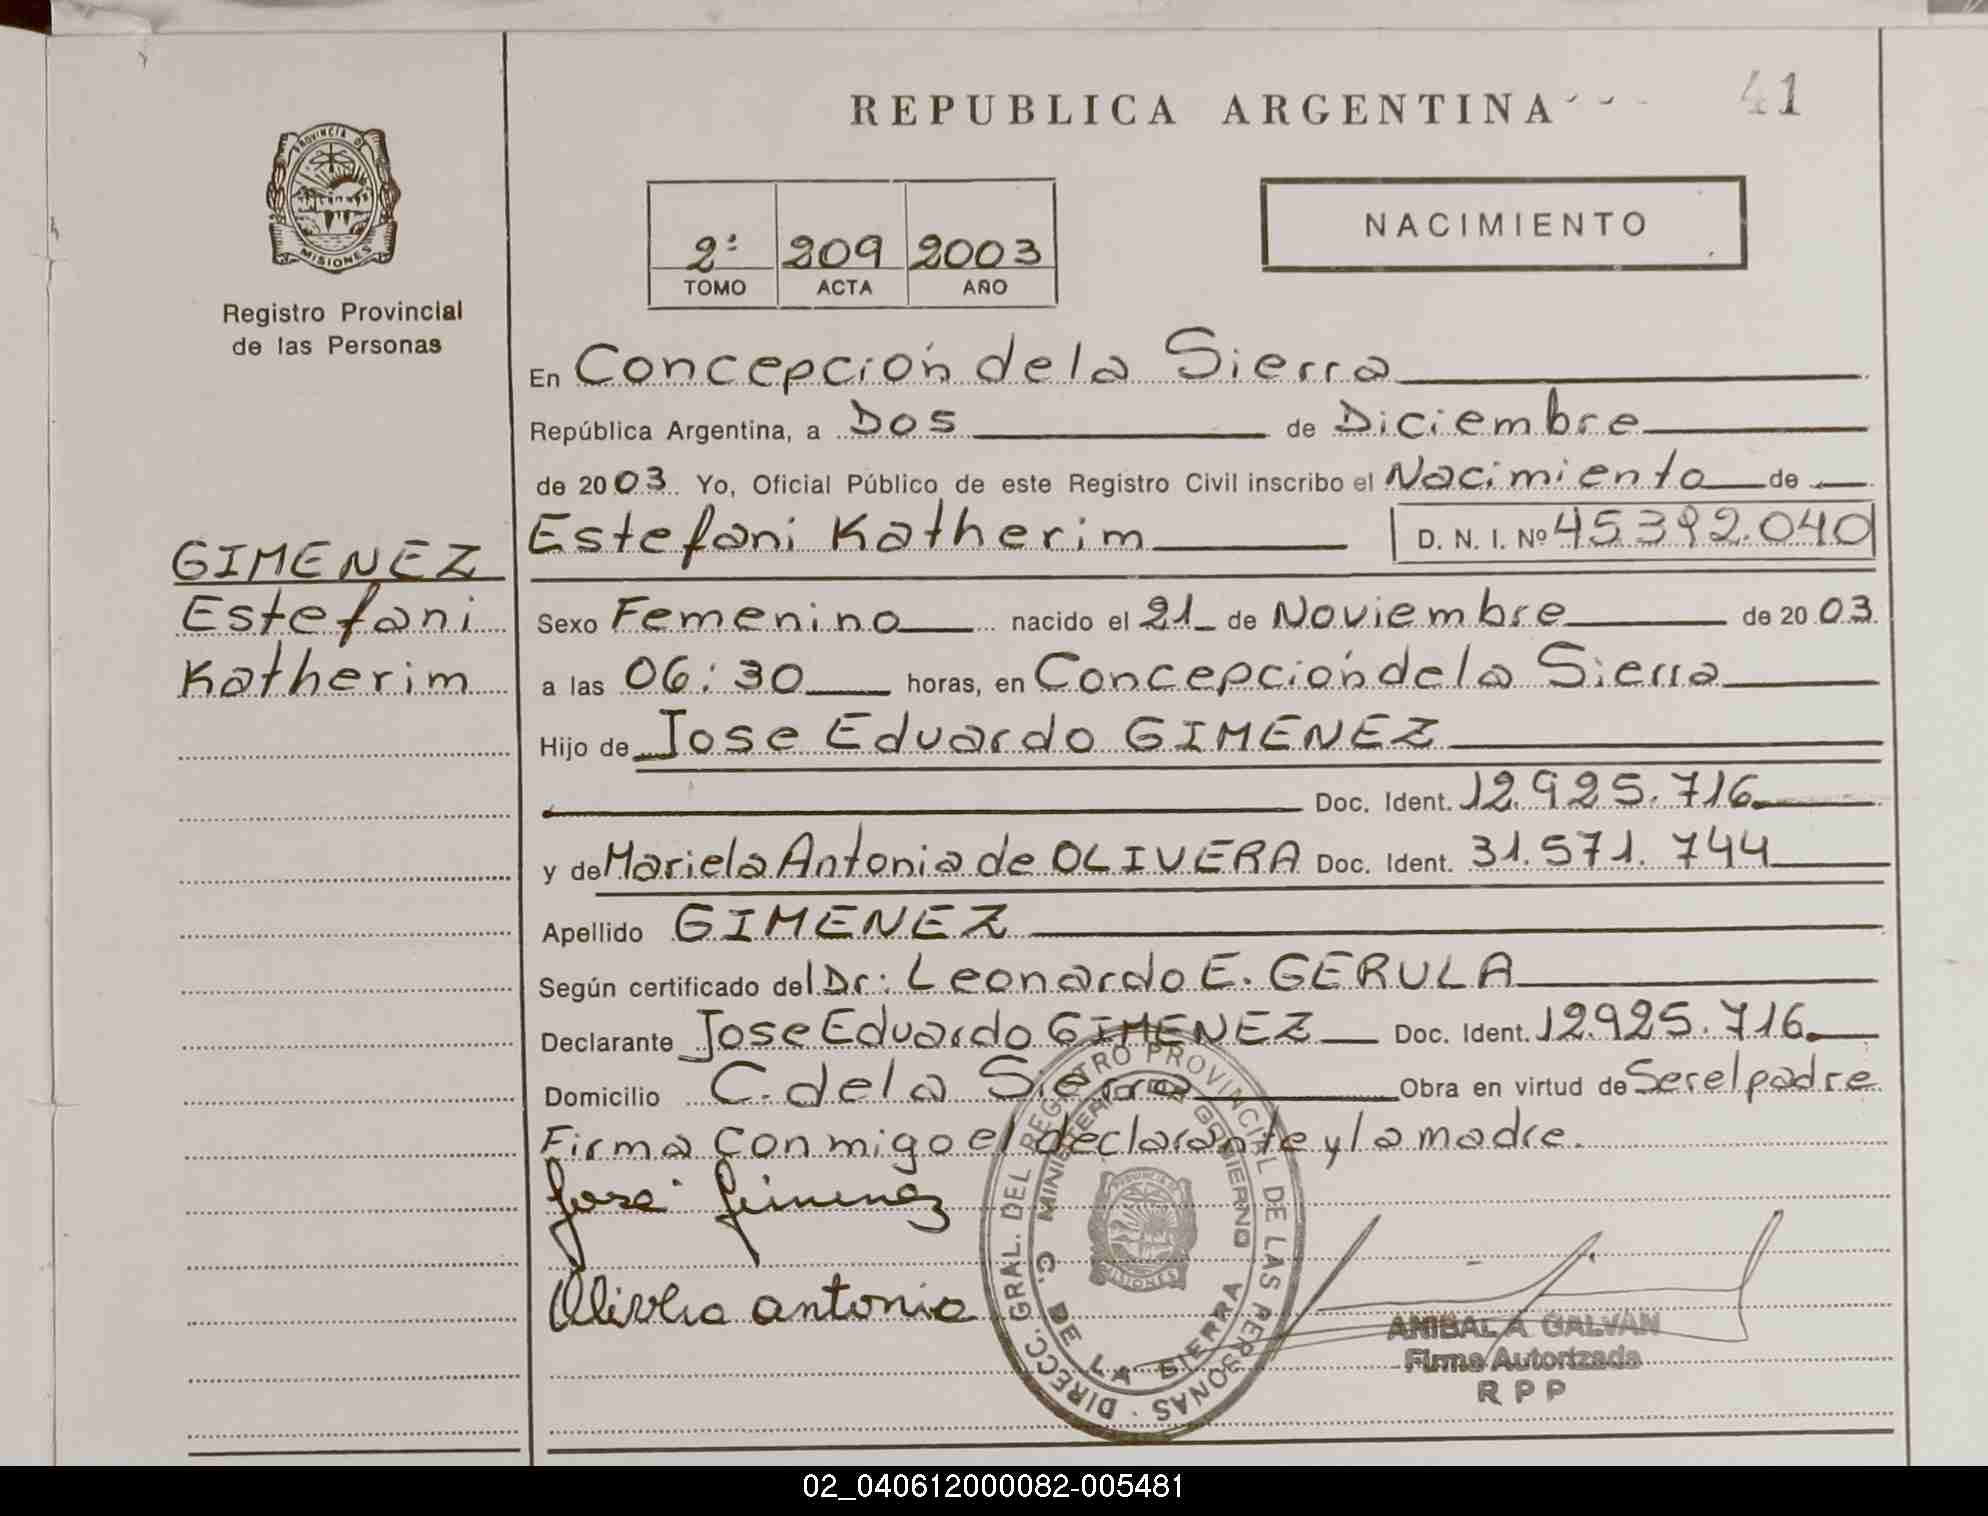 REPUBLICA ARGENTINA
41
PROVINCIA DE
MISIONES
Registro Provincial
de las Personas
2ª 209 2003
TOMO ACTA AÑO
NACIMIENTO
En Concepción de la Sierra
República Argentina, a Dos de Diciembre
de 2003 Yo, Oficial Público de este Registro Civil inscribo el Nacimiento de
Estefani Katherim D. N. I. Nº 45.392.040
GIMENEZ
Estefani
Katherim
Sexo Femenino nacido el 21 de Noviembre de 2003
a las 06:30 horas, en Concepción de la Sierra
Hijo de Jose Eduardo GIMENEZ
Doc. Ident. 12.925.716
y de Mariela Antonia de OLIVERA Doc. Ident. 31.571.744
Apellido GIMENEZ
Según certificado del Dr: Leonardo E. GERULA
Declarante Jose Eduardo GIMENEZ Doc. Ident. 12.925.716
Domicilio C. de la Sierra Obra en virtud de Ser el padre
Firma conmigo el declarante y la madre.
José Gimenez
antonia
DIRECC. GRAL. DEL REGISTRO PROVINCIAL DE LAS PERSONAS
MINISTERIO DE GOBIERNO
C. DE LA SIERRA
PROVINCIA DE
MISIONES
ANIBAL A GALVAN
Firma Autorizada
R P P
02_040612000082-005481